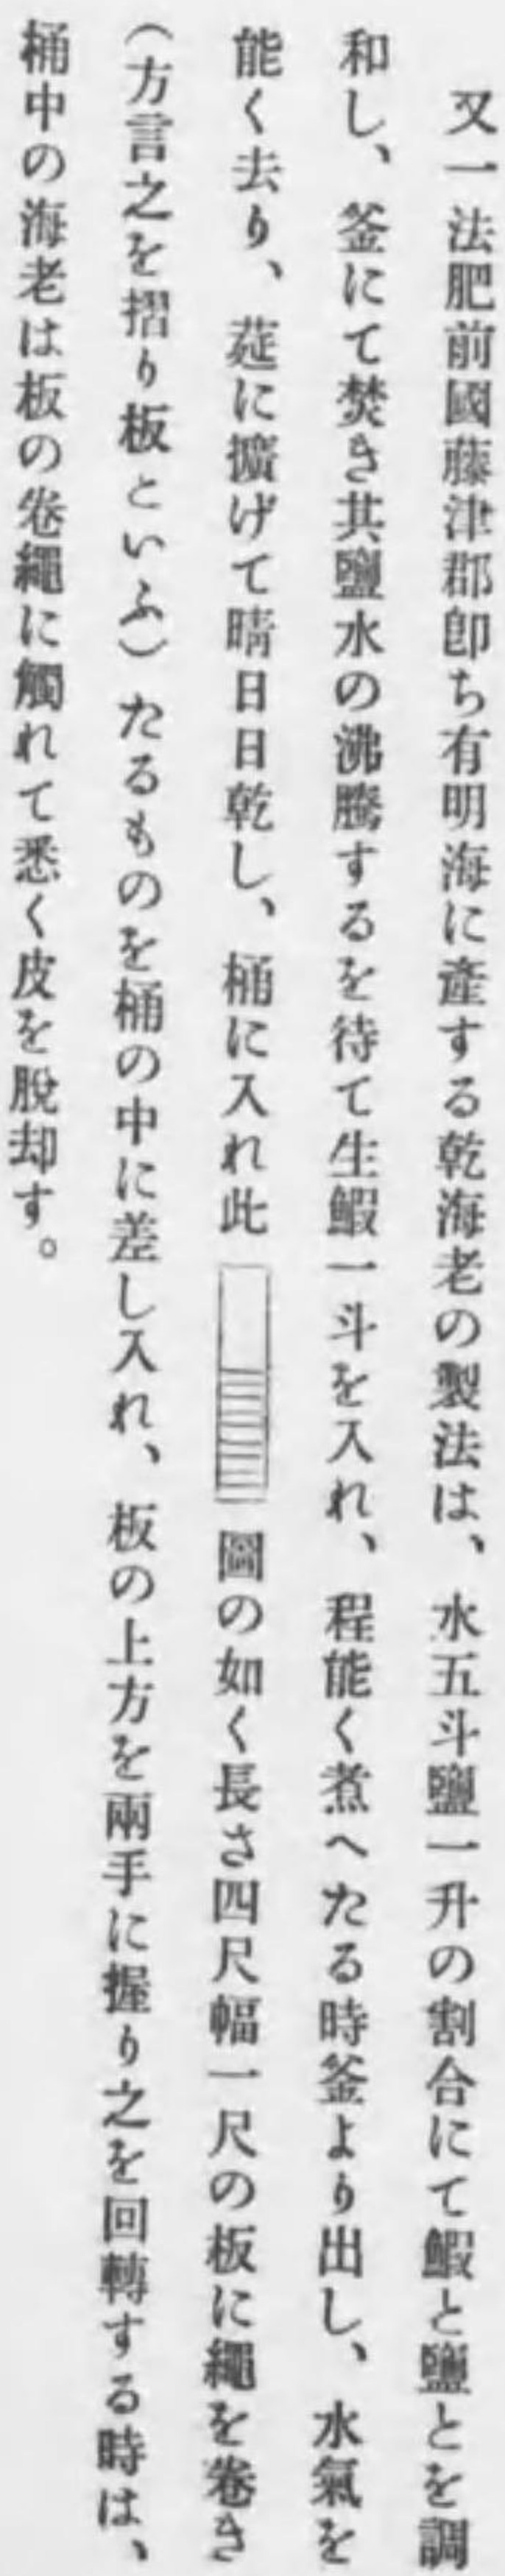 又一法肥前國藤津郡卽ち有明海に產する乾海老の製法は、水五斗鹽一升の割合にて鰕と鹽とを調
和し、釜にて焚き其鹽水の沸騰するを待て生鰕一斗を入れ、程能く煮へたる時釜より出し、水氣を
能く去り、莚に擴げて晴日日乾し、桶に入れ此圖の如く長さ四尺幅一尺の板に繩を卷き
（方言之を摺り板といふ）たるものを桶の中に差し入れ、板の上方を兩手に握り之を回轉する時は、
桶中の海老は板の卷繩に觸れて悉く皮を脫却す。